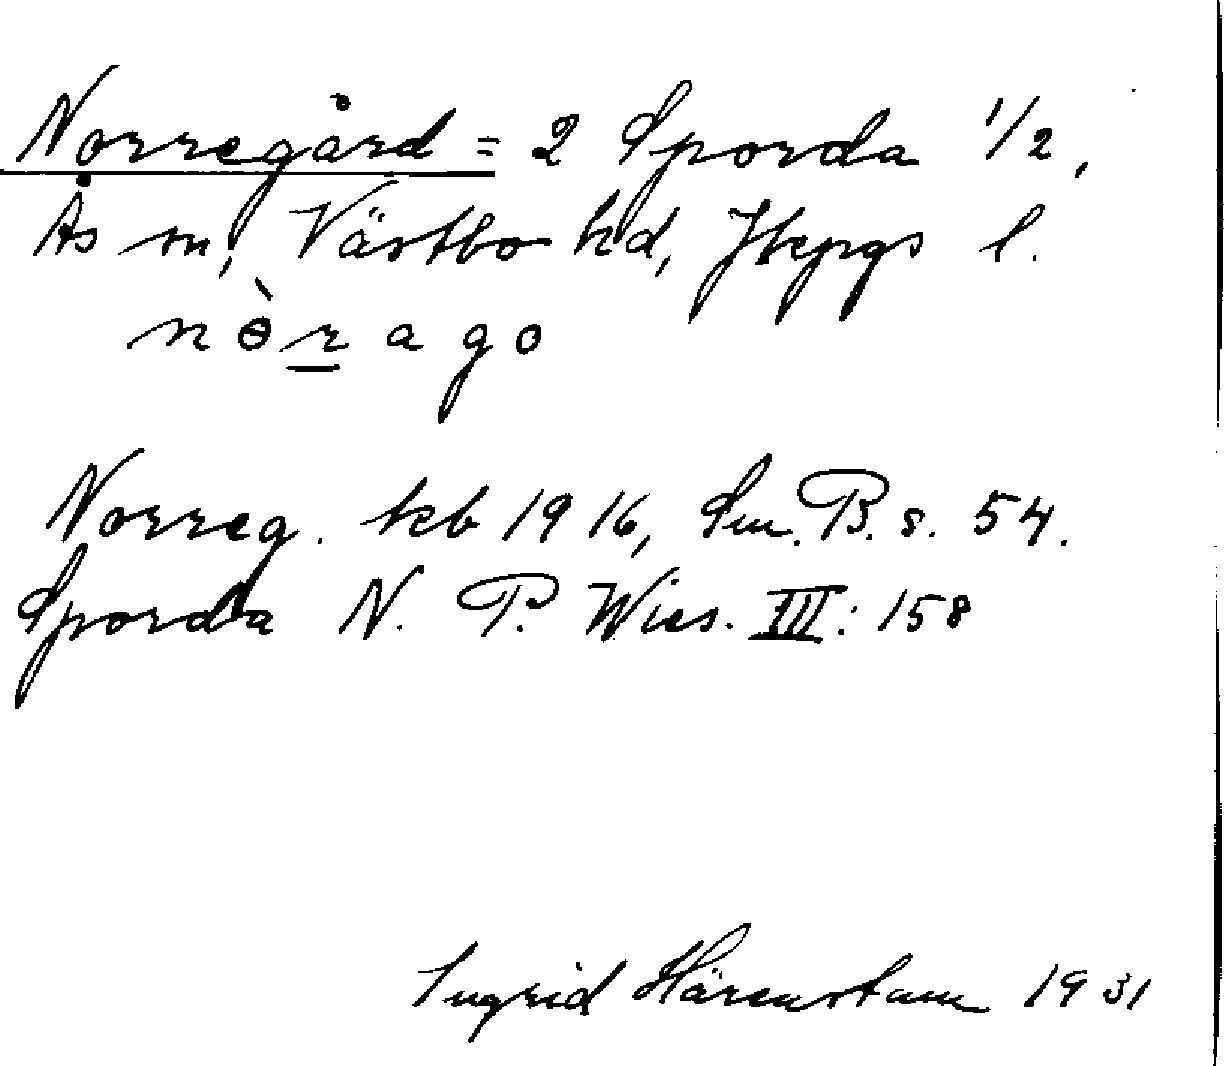 Norregård = 2 Sporda 1/2,
Ås sn, Västbo hd, Jkpgs l.
nɵ̀r̲ago
Norreg. kb 1916, Sm. B. s. 54.
Sporda N. P. Wies. III: 158
Ingrid Härenstam 1931